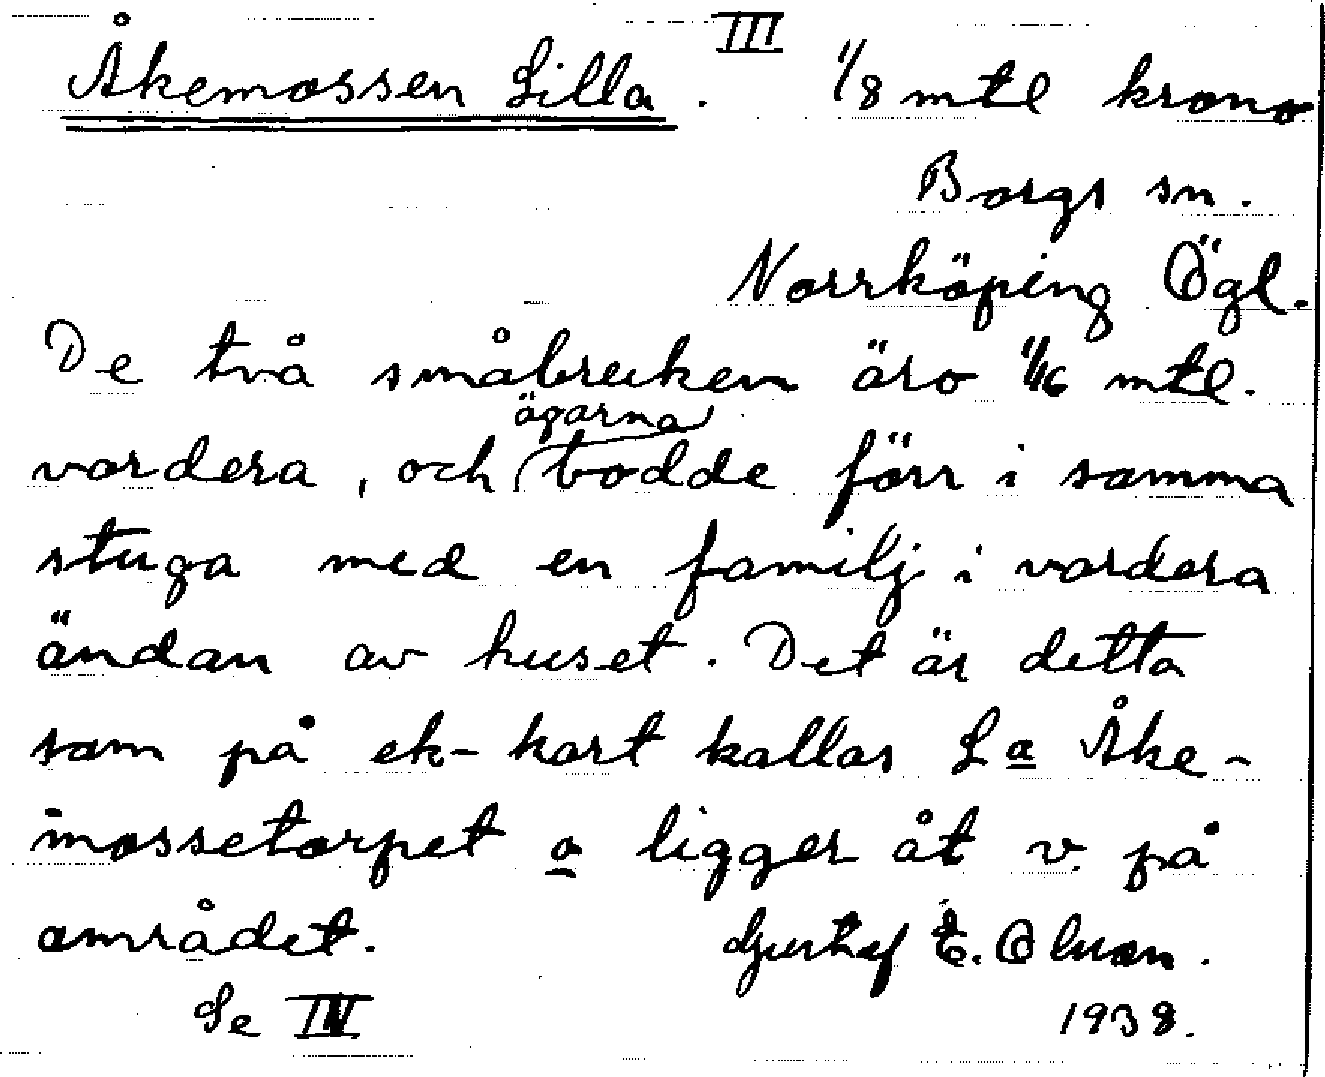 III
Åkemossen Lilla. 1/8 mtl krono
Borgs sn.
Norrköping Ögl.
De två småbruken äro 1/16 mtl.
vardera, och ägarna bodde förr i samma
stuga med en familj i vardera
ändan av huset. Det är detta
som på ek-kart kallas La Åke-
mossetorpet o ligger åt v. på
området. Gustaf E. Olsson.
Se IV 1938.